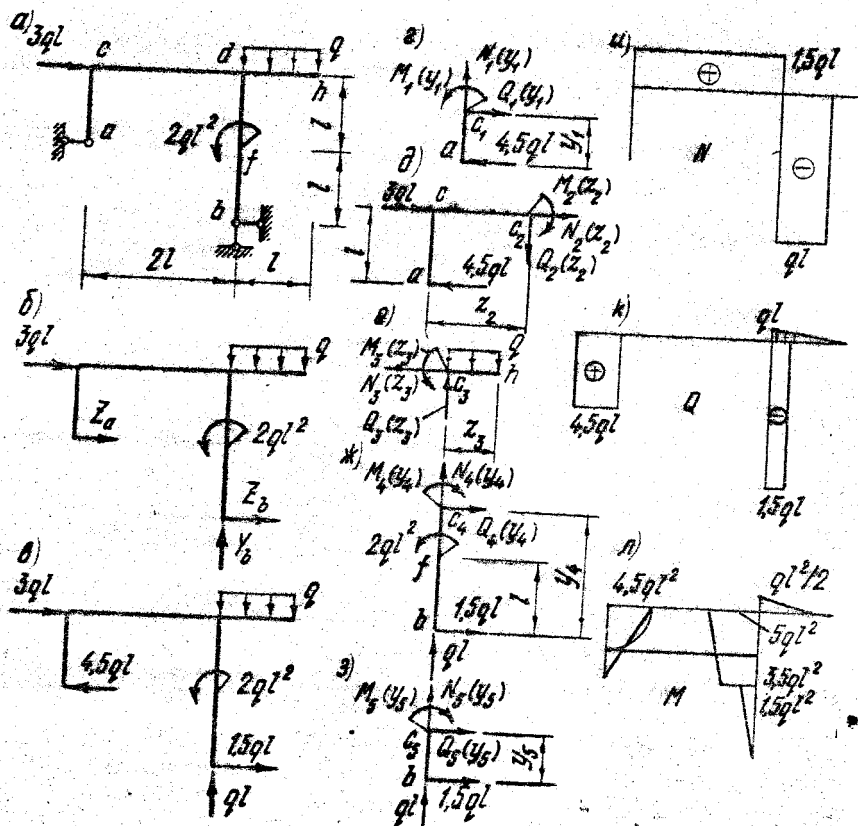 а)
3ql
c
d
q
h
a
2ql²
f
l
b
l
2l
l
б)
3ql
q
Z_a
2ql²
Z_b
Y_b
в)
3ql
q
4,5ql
2ql²
1,5ql
ql
г)
N₁(y₁)
M₁(y₁)
Q₁(y₁)
C₁
y₁
a
4,5ql
д)
3ql
c
M₂(z₂)
C₂
N₂(z₂)
Q₂(z₂)
l
a
4,5ql
z₂
е)
M₃(z₃)
q
N₃(z₃)
C₃
h
Q₃(z₃)
z₃
ж)
M₄(y₄)
N₄(y₄)
C₄
Q₄(y₄)
2ql²
f
l
y₄
b
1,5ql
ql
з)
M₅(y₅)
N₅(y₅)
C₅
Q₅(y₅)
y₅
b
1,5ql
ql
и)
1,5ql
+
N
−
ql
к)
ql
+
Q
−
4,5ql
1,5ql
л)
4,5ql²
ql²/2
5ql²
3,5ql²
1,5ql²
M